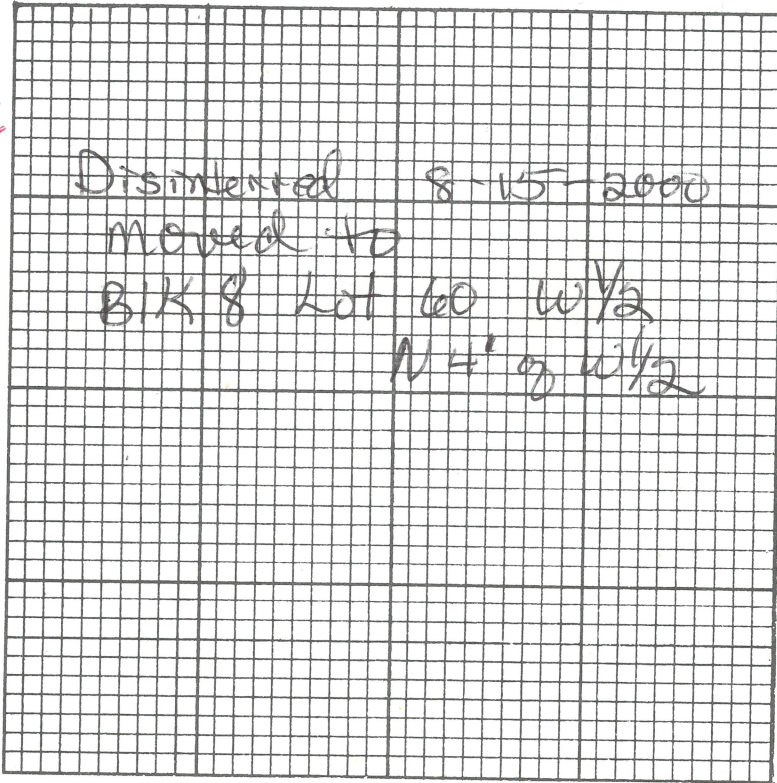 Disinterred 8-15-2000
moved to
Blk 8 Lot 60 W 1/2
N 4' of W 1/2